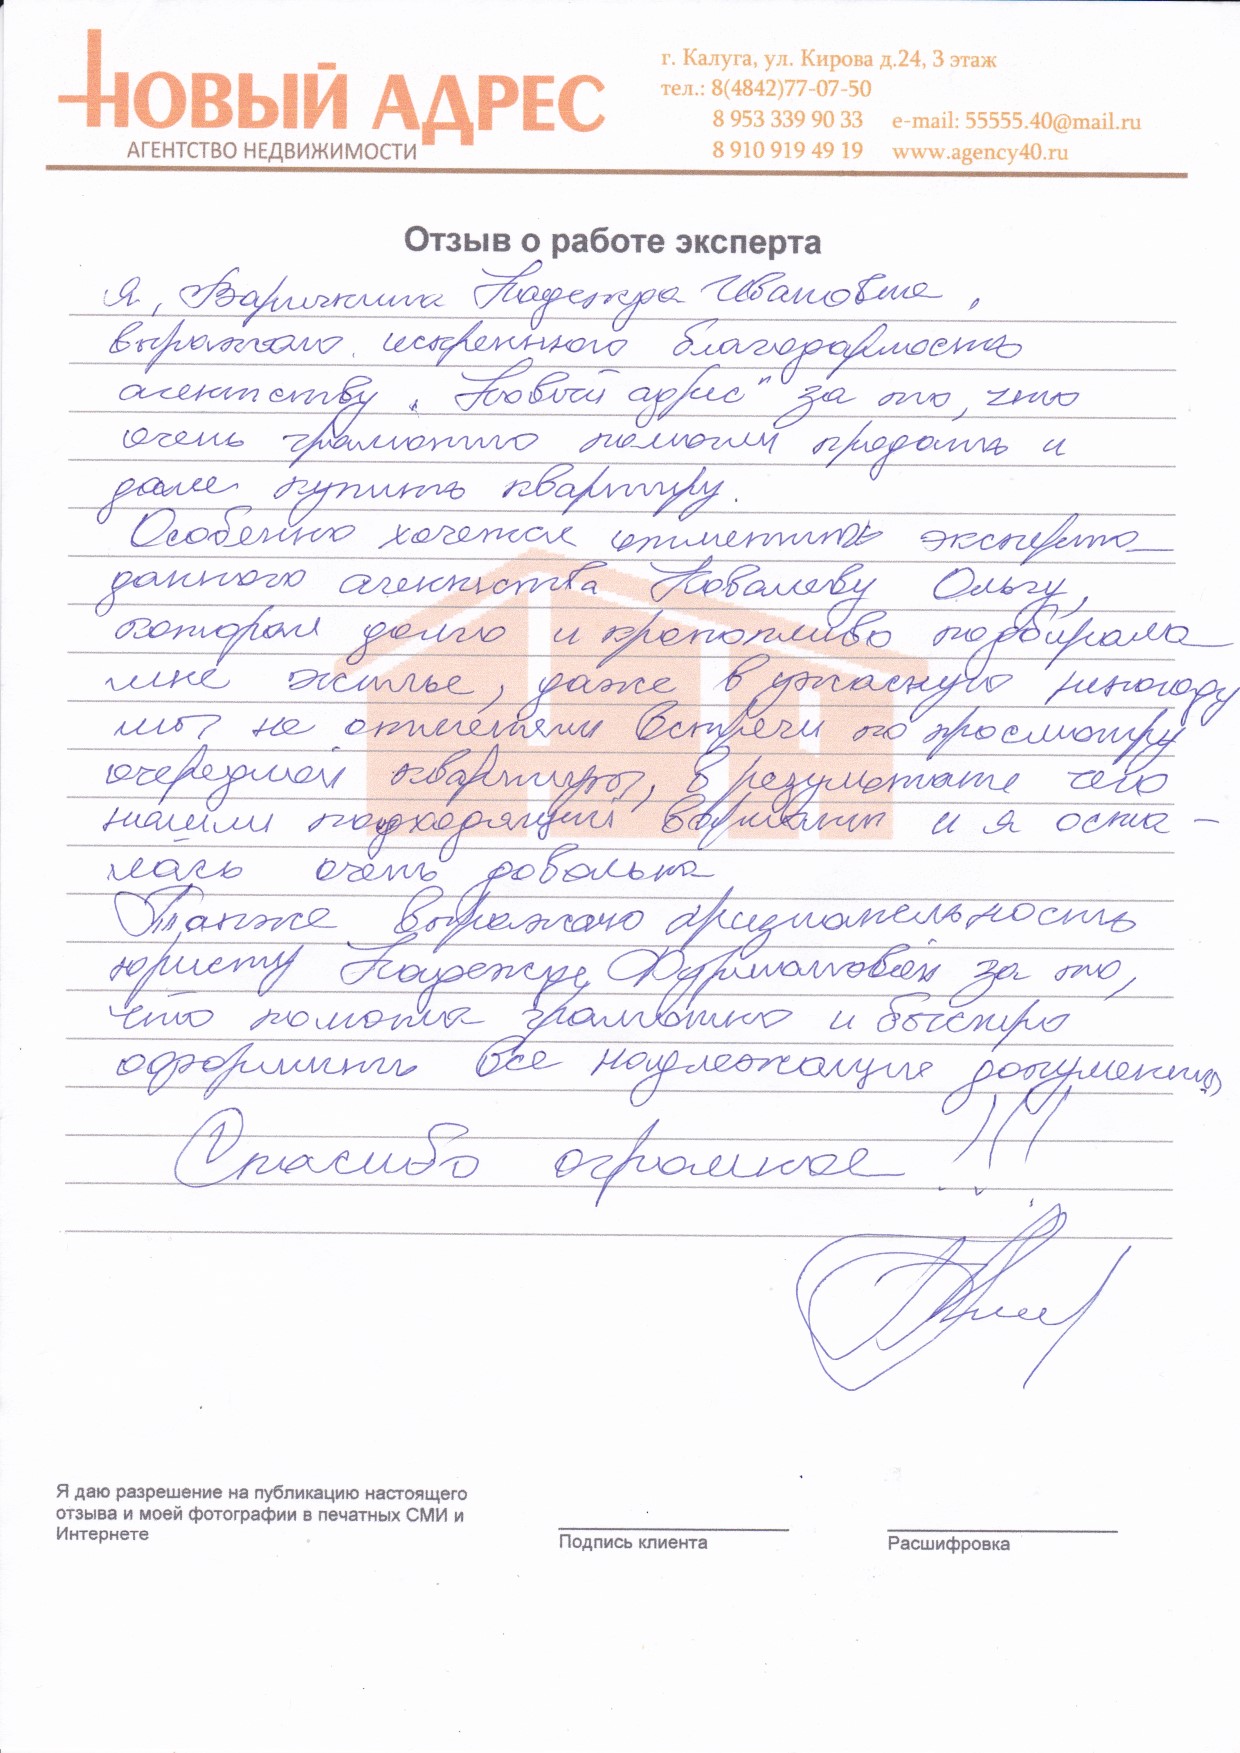 НОВЫЙ АДРЕС
АГЕНТСТВО НЕДВИЖИМОСТИ
г. Калуга, ул. Кирова д.24, 3 этаж
тел.: 8(4842)77-07-50
8 953 339 90 33 e-mail: 55555.40@mail.ru
8 910 919 49 19 www.agency40.ru
Отзыв о работе эксперта
Я, Надежда Ивановна,
выражаю искреннюю благодарность
агентству „Новый адрес" за то, что
очень грамотно помогли продать и
далее купить квартиру.
Особенно хочется отметить эксперта
данного агентства Ковалеву Ольгу,
которая долго и кропотливо подбирала
мне жилье, даже в ужасную непогоду
мы не отменяли встречи по просмотру
очередной квартиры, в результате чего
нашли подходящий вариант и я оста-
лась очень довольна
Также выражаю признательность
юристу Надежде за то,
что помогла грамотно и быстро
оформить все надлежащие документы
Спасибо огромное!!!
Я даю разрешение на публикацию настоящего
отзыва и моей фотографии в печатных СМИ и
Интернете
Подпись клиента
Расшифровка